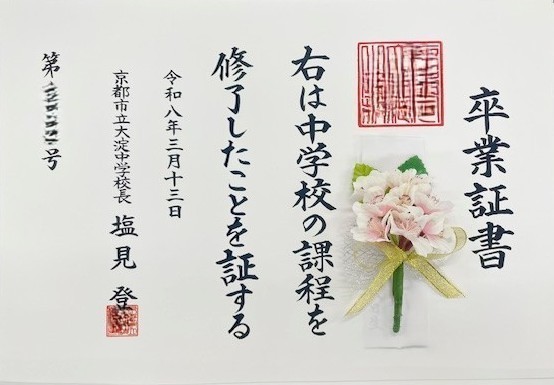 卒業証書
右は中学校の課程を
修了したことを証する
令和八年三月十三日
京都市立大淀中学校長 塩見 登
第 号